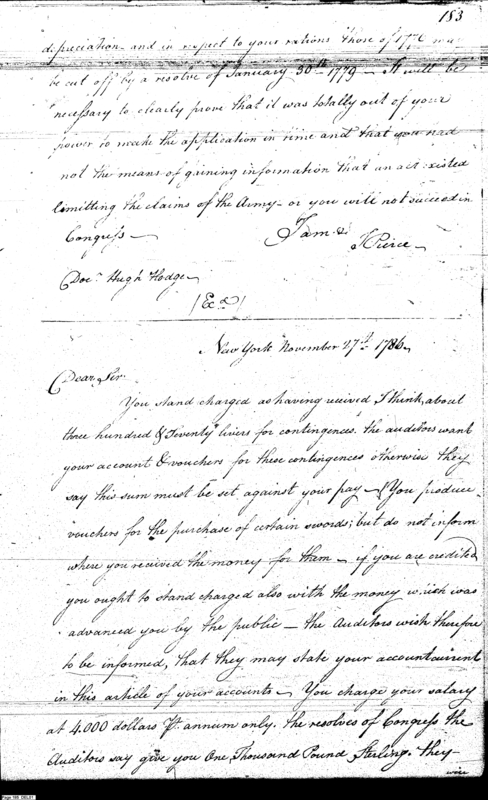 183
depreciation and in respect to your rations those of 1776 may
be cut off by a resolve of January 30th 1779 — It will be
necessary to clearly prove that it was totally out of your
power to make the application in time and that you had
not the means of gaining information that an act existed
limitting the claims of the Army — or you will not succeed in
Congress —
I am &c
J Pierce —
Docr Hugh Hodge —
New York November 27th 1786 —
Dear Sir
You stand charged as having received I think, about
three hundred & Seventy livers for contingences. the auditors want
your account & vouchers for these contingences otherwise they
say this sum must be set against your pay — You produce
vouchers for the purchase of certain swords; but do not inform
where you received the money for them — if you are credited
you ought to stand charged also with the money which was
advanced you by the public — the Auditors wish therefore
to be informed, that they may state your account current
in this article of your accounts — You charge your salary
at 4.000 dollars Pr annum only. the resolves of Congress the
Auditors say give you One Thousand Pound Sterling. they
Page 185 DEC.21